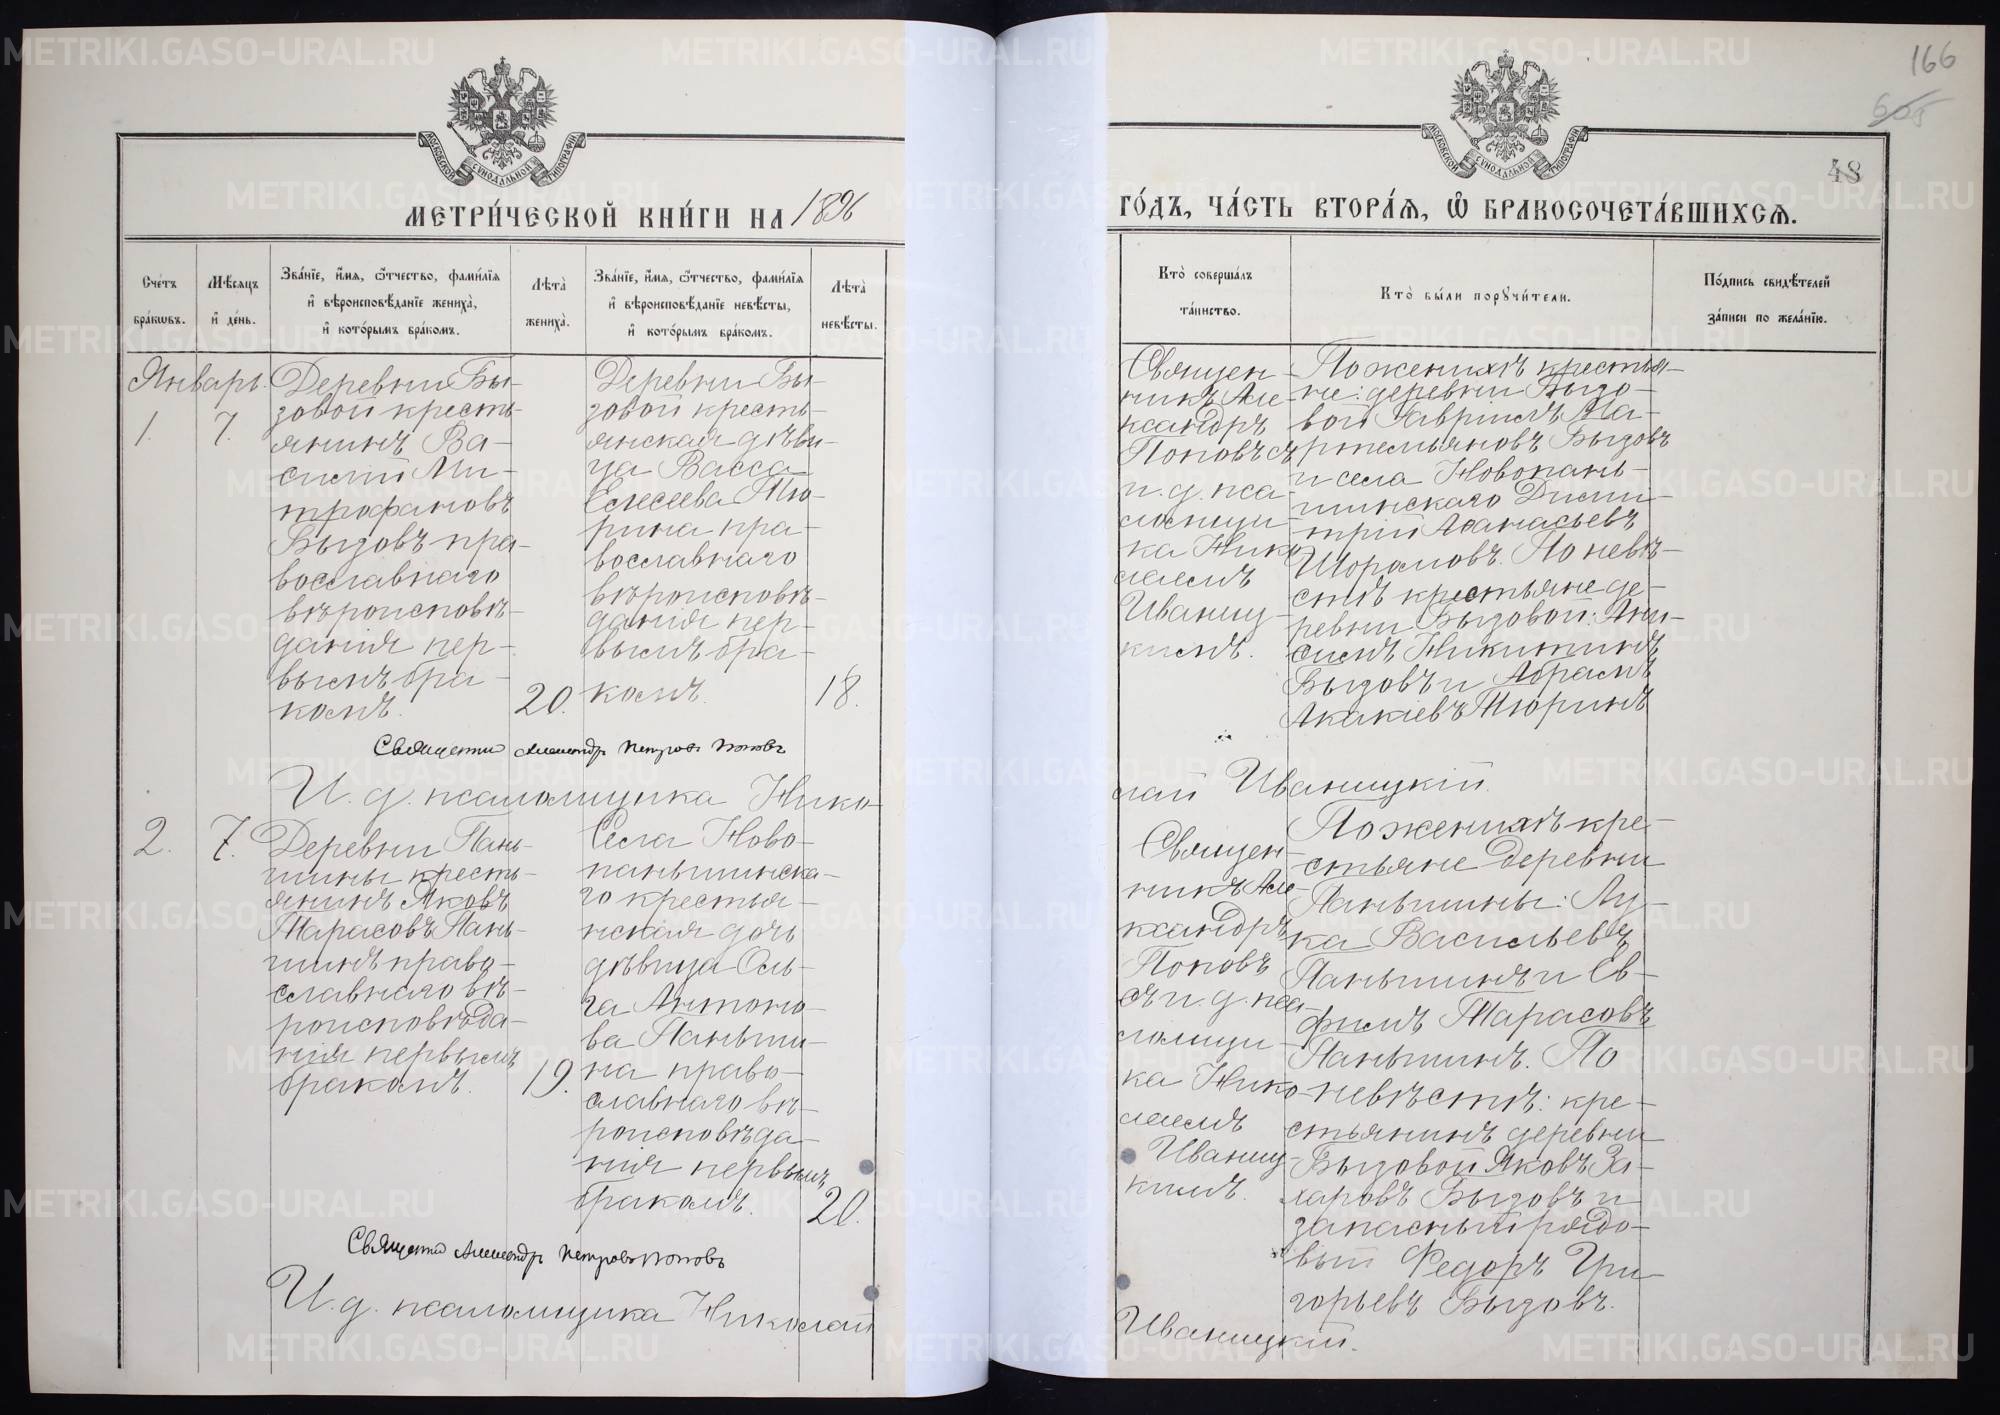 166
48
МОСКОВСКОЙ СѴНОДАЛЬНОЙ ТИПОГРАФІИ
МОСКОВСКОЙ СѴНОДАЛЬНОЙ ТИПОГРАФІИ
МЕТРИ́ЧЕСКОЙ КНИ́ГИ НА 1896
ГО́ДЪ, ЧА́СТЬ ВТОРА́Я, Ѿ БРАКОСОЧЕТА́ВШИХСЯ.
Сче́тъ
бра́кωвъ.
Мѣ́сяцъ
и҆ де́нь.
Зва́нїе, и҆́мя, ѻ҆́тчество, фами́лїя
и҆ вѣроисповѣ́данїе жениха̀,
и҆ кото́рымъ бра́комъ.
Лѣ́та̀
жениха̀.
Зва́нїе, и҆́мя, ѻ҆́тчество, фами́лїя
и҆ вѣроисповѣ́данїе невѣ́сты,
и҆ кото́рымъ бра́комъ.
Лѣ́та̀
невѣ́сты.
Кто̀ соверша́лъ
та́инство.
Кто̀ бы́ли порꙋчи́тели.
По́дпись свидѣ́телей
за́писи по жела́нїю.
Январь.
1.
7.
Деревни Бы-
зовой кресть-
янинъ Ва-
силій Ми-
трофановъ
Бызовъ пра-
вославнаго
вѣроисповѣ-
данія пер-
вымъ бра-
комъ.
20.
Деревни Бы-
зовой кресть-
янская дѣви-
ца Васса
Елесеева Тю-
рина пра-
вославнаго
вѣроисповѣ-
данія пер-
вымъ бра-
комъ.
18.
Священ-
никъ Але-
ксандръ
Поповъ съ
и. д. пса-
ломщи-
ка Нико-
лаемъ
Иваниц-
кимъ.
По женихѣ крестья-
не: деревни Бызо-
вой Гавріилъ Ма-
ртемьяновъ Бызовъ
и села Новопань-
шинскаго Дими-
трій Аѳанасьевъ
Шорамовъ. По невѣ-
стѣ крестьяне де-
ревни Бызовой: Ани-
симъ Никитинъ
Бызовъ и Абрамъ
Акакіевъ Тюринъ
Священн Александръ Петровъ Поповъ
И. д. псаломщика Нико-
лай Иваницкій.
2.
7.
Деревни Пань-
шины кресть-
янинъ Яковъ
Тарасовъ Пань-
шинъ право-
славнаго вѣ-
роисповѣда-
нія первымъ
бракомъ.
19.
Села Ново-
паньшинска-
го крестья-
нская дочь
дѣвица Оль-
га Антоно-
ва Паньши-
на право-
славнаго вѣ-
роисповѣда-
нія первымъ
бракомъ.
20.
Священ-
никъ Але-
ксандръ
Поповъ
съ и. д. пса-
ломщи-
ка Нико-
лаемъ
Иваниц-
кимъ.
По женихѣ кре-
стьяне деревни
Паньшины: Лу-
ка Васильевъ
Паньшинъ и Ев-
фимъ Тарасовъ
Паньшинъ. По
невѣстѣ: кре-
стьянинъ деревни
Бызовой Яковъ За-
харовъ Бызовъ и
запасный рядо-
вый Федоръ Гри-
горьевъ Бызовъ.
Священн Александръ Петровъ Поповъ
И. д. псаломщика Николай
Иваницкій.
METRIKI.GASO-URAL.RU